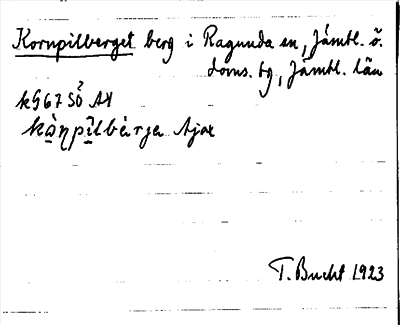 Kornpilberget berg i Ragunda sn, Jämtl. ö.
doms. tg, Jämtl. län
kG67SÖ AX
Ajax
T. Bucht 1923